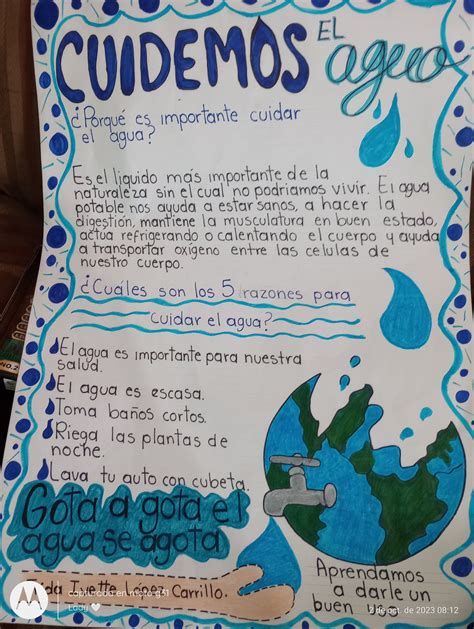 CUIDEMOS EL agua
¿Porqué es importante cuidar
el agua?
Es el liquido más importante de la
naturaleza sin el cual no podriamos vivir. El agua
potable nos ayuda a estar sanos, a hacer la
digestión, mantiene la musculatura en buen estado,
actua refrigerando o calentando el cuerpo y ayuda
a transportar oxigeno entre las celulas de
nuestro cuerpo.
¿Cuáles son los 5 razones para
cuidar el agua?
El agua es importante para nuestra
salud.
El agua es escasa.
Toma baños cortos.
Riega las plantas de
noche.
Lava tu auto con cubeta.
Gota a gota el
agua se agota
Aprendamos
a darle un
buen
Ivette López Carrillo.
capturada en moto g51
Lady
2 de oct. de 2023 08:12